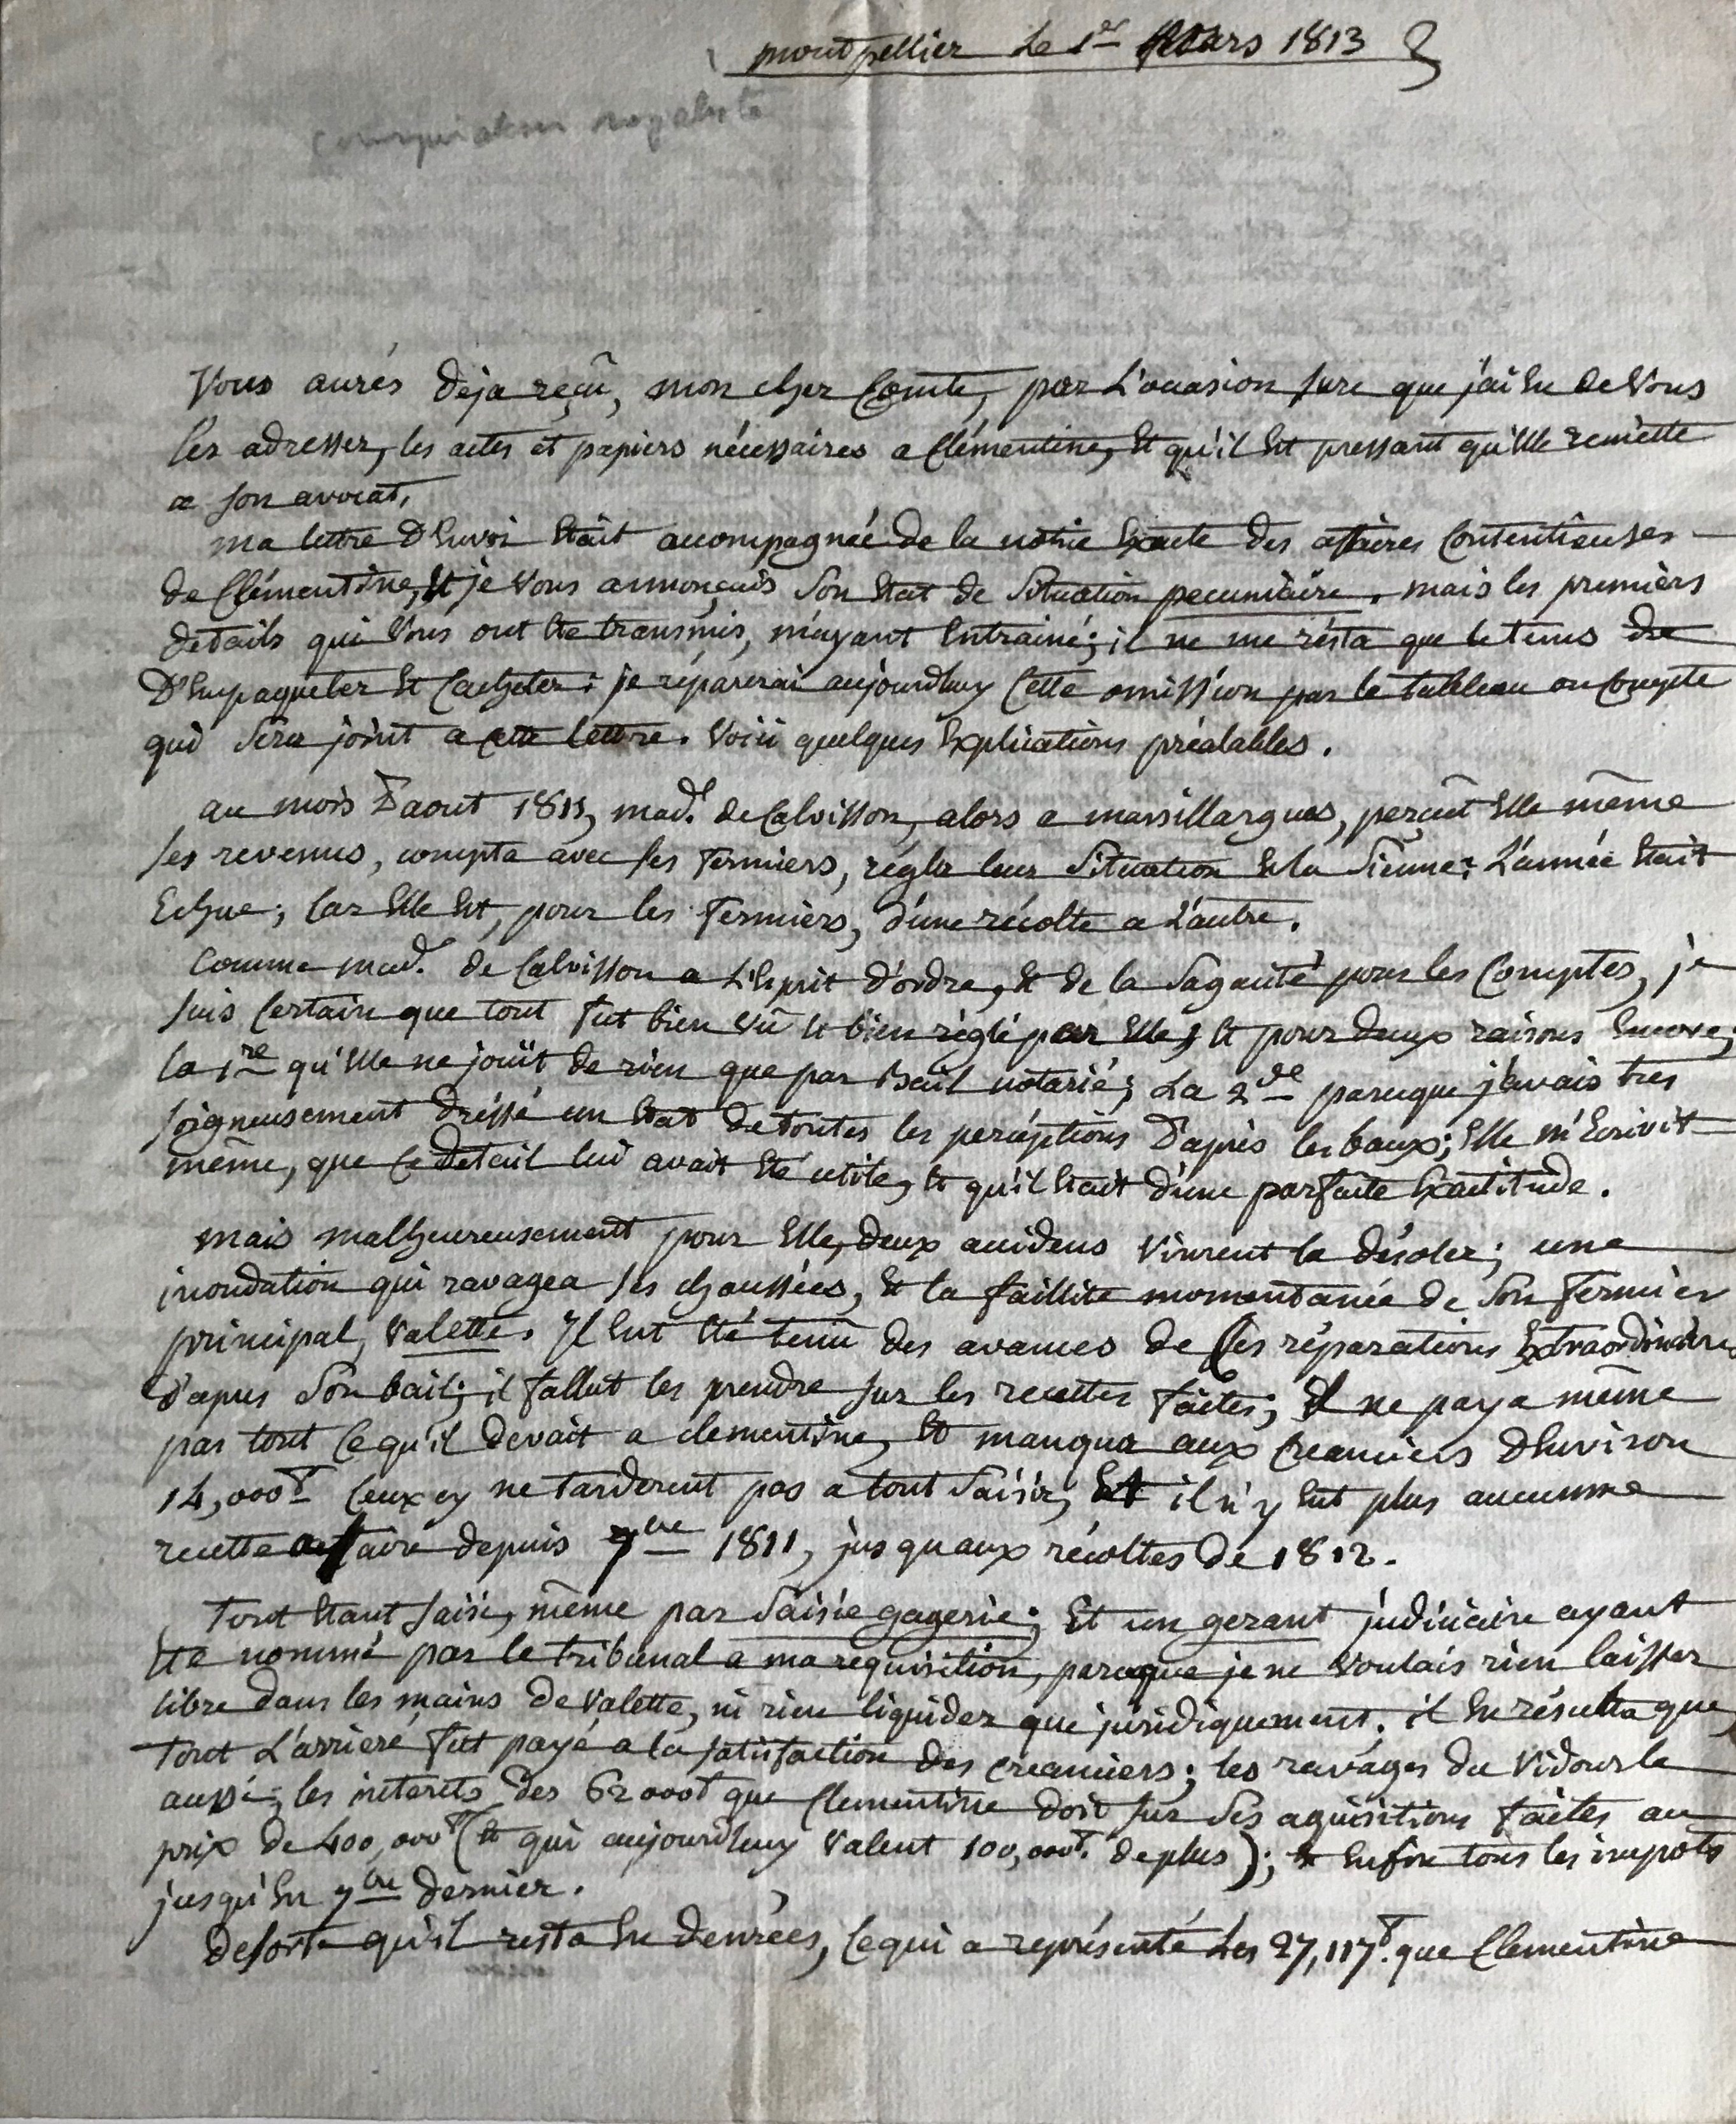 montpellier Le 1er Mars 1813
conspirateur royaliste
Vous aurés deja reçû, mon cher Comte, par L'occasion sure que j'ai eu de Vous
les adresser, les actes et papiers nécessaires a Clémentine, et qu'il est pressant qu'elle remette
a son avocat,
ma lettre d'envoi était accompagnée de la notice exacte des affaires Contentieuses
de Clémentine, et je vous annonçais son état de situation pecuniaire, mais les premiers
details qui vous ont été transmis, m'ayant entrainé; il ne me résta que le tems de
d'empaqueter et cacheter: je réparerai aujourdhuy cette omission par le tableau ou compte
qui sera joint a cette lettre. Voici quelques explications préalables.
au mois d'aout 1811, mad.e de Calvisson, alors a marsillargues, perçut elle même
ses revenus, compta avec ses fermiers, régla leur situation et la sienne: L'année était
echue; car elle est, pour les fermiers, d'une récolte a L'autre.
Comme mad.e de Calvisson a L'esprit d'ordre, et de la sagacité pour les Comptes, je
suis certain que tout fut bien vû et bien règlé par elle; et pour deux raisons encore;
la 1re qu'elle ne jouit de rien que par bail notarié; La 2de parceque j'avais tres
soigneusement dréssé un état de toutes les percéptions d'après les baux; elle m'écrivit
même, que ce detail lui avait été utile, et qu'il était d'une parfaite exactitude.
mais malheureusement pour elle, deux accidens vinrent la désoler; une
inondation qui ravagea ses chaussées, et la faillite momentanée de son fermier
principal, Valette. Il eut été tenu des avances de ces réparations extraordinaires
d'apres son bail; il fallut les prendre sur les recettes faites; il ne paya même
pas tout ce qu'il devait a clementine, et manqua aux creanciers d'environ
14,000f ceux cy ne tarderent pas a tout saisir, et il n'y eut plus aucunne
recette a faire depuis 7bre 1811, jusquaux récoltes de 1812.
Tout étant saisi, même par saisie gagerie; et un gerant judiciaire ayant
été nommé par le tribunal a ma requisition, parceque je ne voulais rien laisser
libre dans les mains de Valette, ni rien liquider que juridiquement. il en résulta que
tout L'arrieré fut payé a la satisfaction des creanciers; les ravages du Vidourle
aussi; les interets des 62000f que Clementine doit sur ses aquisitions faites au
prix de 400,000f (et qui aujourdhuy valent 100,000f. de plus); et enfin tous les impots
jusqu'en 7bre dernier.
de sorte qu'il resta en denrées, ce qui a représenté Les 27,117f. que Clementine